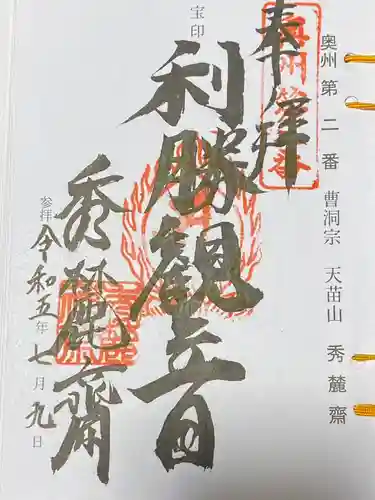 奥州 第二番 曹洞宗 天苗山 秀麓齋
奉拝
奥州第二番
宝印
利勝観音
秀麓齋
参拝 令和五年七月九日